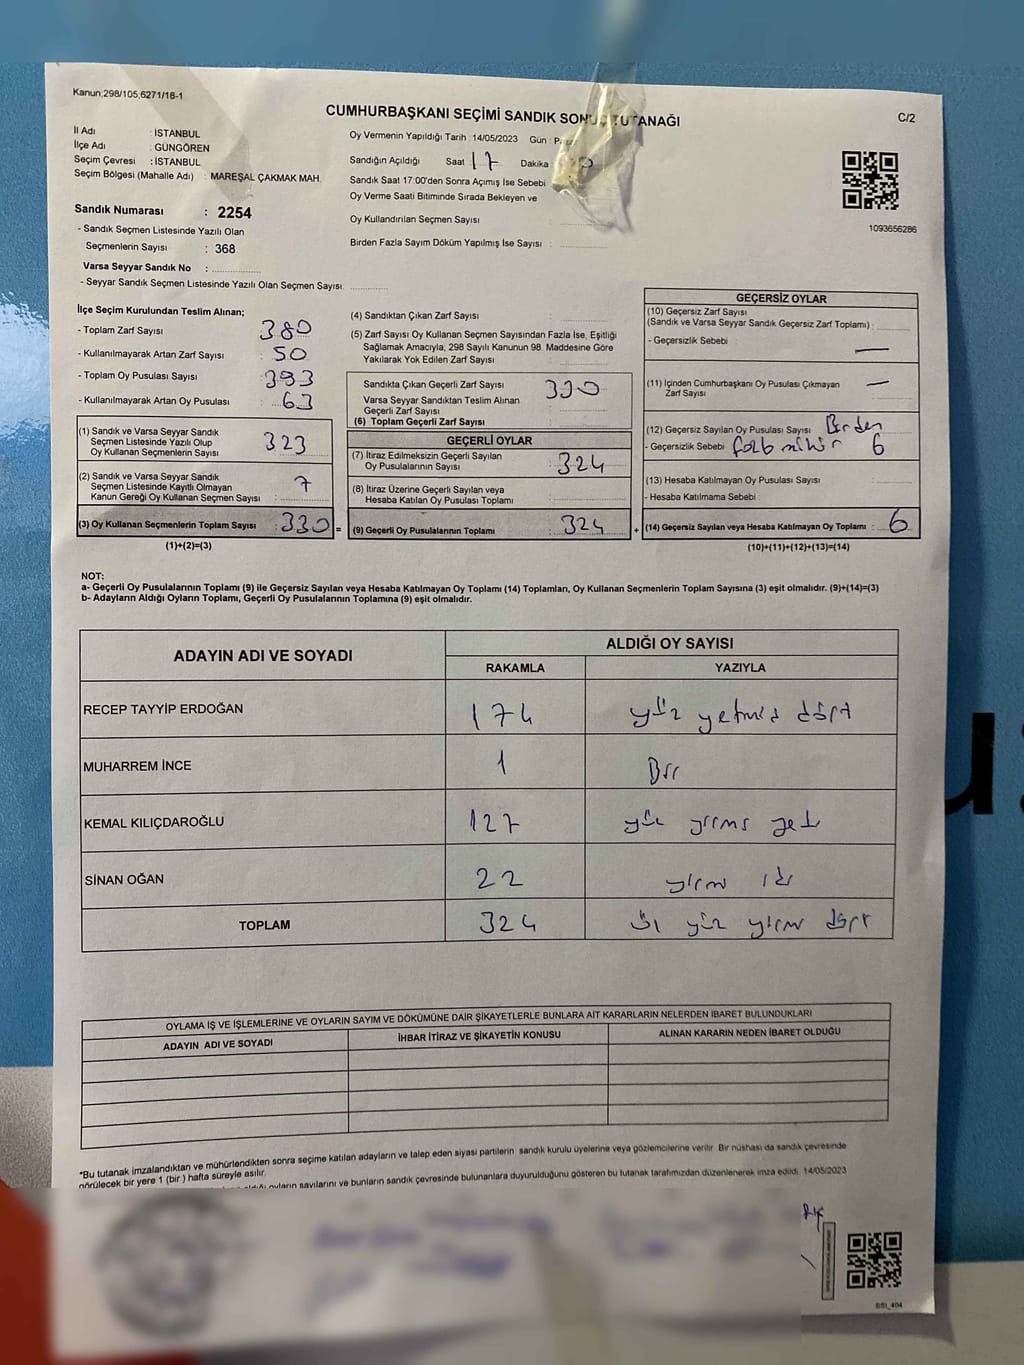 Kanun;298/105,6271/18-1
CUMHURBAŞKANI SEÇİMİ SANDIK SONUÇ TUTANAĞI
C/2
İl Adı : İSTANBUL
İlçe Adı : GÜNGÖREN
Seçim Çevresi : İSTANBUL
Seçim Bölgesi (Mahalle Adı) : MAREŞAL ÇAKMAK MAH.
Oy Vermenin Yapıldığı Tarih :14/05/2023 Gün :
Sandığın Açıldığı Saat 17 Dakika
Sandık Saat 17:00'den Sonra Açımış İse Sebebi
Oy Verme Saati Bitiminde Sırada Bekleyen ve
Oy Kullandırılan Seçmen Sayısı :
Birden Fazla Sayım Döküm Yapılmış İse Sayısı :
1093656286
Sandık Numarası : 2254
- Sandık Seçmen Listesinde Yazılı Olan
Seçmenlerin Sayısı : 368
Varsa Seyyar Sandık No :
- Seyyar Sandık Seçmen Listesinde Yazılı Olan Seçmen Sayısı:
İlçe Seçim Kurulundan Teslim Alınan;
- Toplam Zarf Sayısı : 380
- Kullanılmayarak Artan Zarf Sayısı : 50
- Toplam Oy Pusulası Sayısı : 393
- Kullanılmayarak Artan Oy Pusulası : 63
(1) Sandık ve Varsa Seyyar Sandık
Seçmen Listesinde Yazılı Olup
Oy Kullanan Seçmenlerin Sayısı : 323
(2) Sandık ve Varsa Seyyar Sandık
Seçmen Listesinde Kayıtlı Olmayan
Kanun Gereği Oy Kullanan Seçmen Sayısı : 7
(3) Oy Kullanan Seçmenlerin Toplam Sayısı : 330 =
(1)+(2)=(3)
(4) Sandıktan Çıkan Zarf Sayısı :
(5) Zarf Sayısı Oy Kullanan Seçmen Sayısından Fazla İse, Eşitliği
Sağlamak Amacıyla, 298 Sayılı Kanunun 98. Maddesine Göre
Yakılarak Yok Edilen Zarf Sayısı :
Sandıkta Çıkan Geçerli Zarf Sayısı : 330
Varsa Seyyar Sandıktan Teslim Alınan
Geçerli Zarf Sayısı :
(6) Toplam Geçerli Zarf Sayısı :
GEÇERLİ OYLAR
(7) İtiraz Edilmeksizin Geçerli Sayılan
Oy Pusulalarının Sayısı : 324
(8) İtiraz Üzerine Geçerli Sayılan veya
Hesaba Katılan Oy Pusulası Toplamı :
(9) Geçerli Oy Pusulalarının Toplamı : 324 +
GEÇERSİZ OYLAR
(10) Geçersiz Zarf Sayısı
(Sandık ve Varsa Seyyar Sandık Geçersiz Zarf Toplamı) :
- Geçersizlik Sebebi : —
(11) İçinden Cumhurbaşkanı Oy Pusulası Çıkmayan
Zarf Sayısı : —
(12) Geçersiz Sayılan Oy Pusulası Sayısı : Birden
- Geçersizlik Sebebi : 6
(13) Hesaba Katılmayan Oy Pusulası Sayısı :
- Hesaba Katılmama Sebebi :
(14) Geçersiz Sayılan veya Hesaba Katılmayan Oy Toplamı : 6
(10)+(11)+(12)+(13)=(14)
NOT:
a- Geçerli Oy Pusulalarının Toplamı (9) ile Geçersiz Sayılan veya Hesaba Katılmayan Oy Toplamı (14) Toplamları, Oy Kullanan Seçmenlerin Toplam Sayısına (3) eşit olmalıdır. (9)+(14)=(3)
b- Adayların Aldığı Oyların Toplamı, Geçerli Oy Pusulalarının Toplamına (9) eşit olmalıdır.
ADAYIN ADI VE SOYADI
ALDIĞI OY SAYISI
RAKAMLA YAZIYLA
RECEP TAYYİP ERDOĞAN 174 yüz yetmiş dört
MUHARREM İNCE 1 Bir
KEMAL KILIÇDAROĞLU 127 yüz yirmi yedi
SİNAN OĞAN 22 yirmi iki
TOPLAM 324 üç yüz yirmi dört
OYLAMA İŞ VE İŞLEMLERİNE VE OYLARIN SAYIM VE DÖKÜMÜNE DAİR ŞİKAYETLERLE BUNLARA AİT KARARLARIN NELERDEN İBARET BULUNDUKLARI
ADAYIN ADI VE SOYADI
İHBAR İTİRAZ VE ŞİKAYETİN KONUSU
ALINAN KARARIN NEDEN İBARET OLDUĞU
*Bu tutanak imzalandıktan ve mühürlendikten sonra seçime katılan adayların ve talep eden siyasi partilerin sandık kurulu üyelerine veya gözlemcilerine verilir. Bir nüshası da sandık çevresinde
görülecek bir yere 1 (bir ) hafta süreyle asılır.
oyların sayılarını ve bunların sandık çevresinde bulunanlara duyurulduğunu gösteren bu tutanak tarafımızdan düzenlenerek imza edildi. 14/05/2023